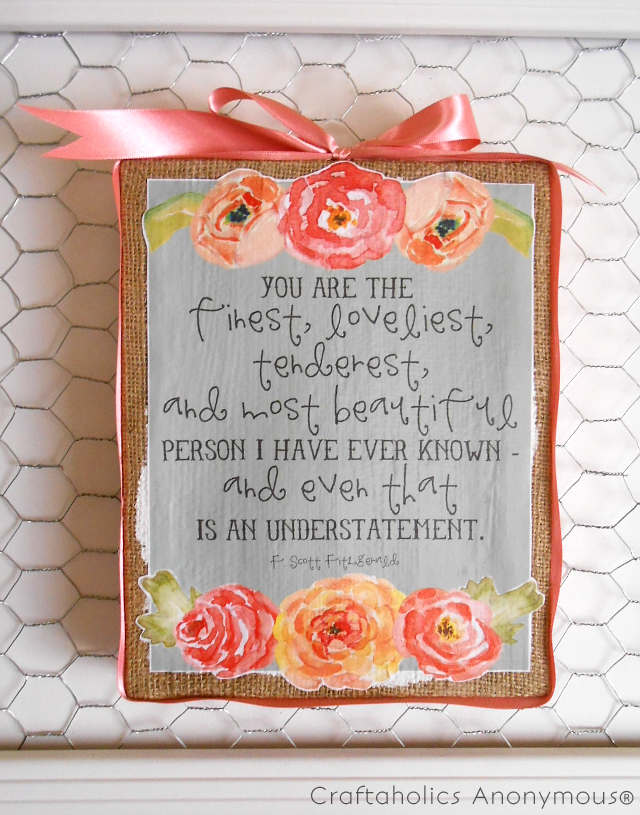 YOU ARE THE
finest, loveliest,
tenderest,
and most beautiful
PERSON I HAVE EVER KNOWN -
and even that
IS AN UNDERSTATEMENT.
F Scott Fitzgerald
Craftaholics Anonymous®